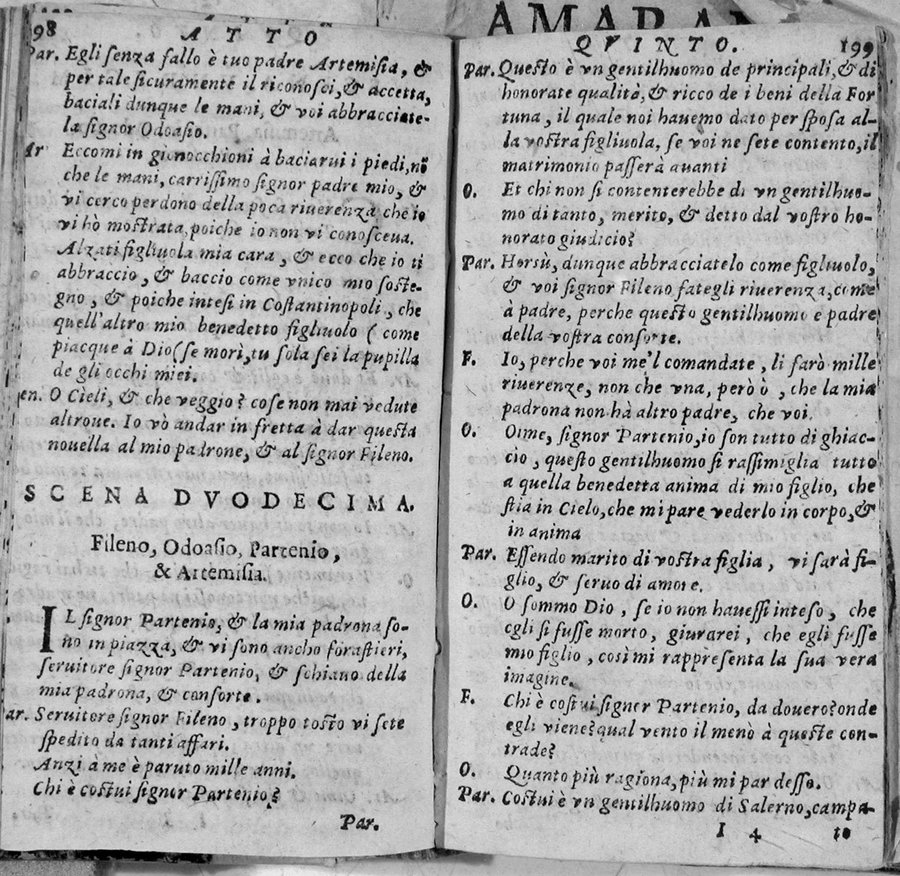 AMARAN
98 ATTO
Par. Egli ſenza fallo è tuo padre Artemiſia, &
per tale ſicuramente il riconoſci, & accetta,
baciali dunque le mani, & voi abbracciate-
la ſignor Odoaſio.
Ar Eccomi in ginocchioni à baciarui i piedi, nō
che le mani, cariſſimo ſignor padre mio, &
vi cerco perdono della poca riuerenza che io
vi hò moſtrata, poiche io non vi conoſceua.
Alzati figliuola mia cara, & ecco che io ti
o abbraccio, & baccio come vnico mio ſoſte-
gno, & poiche inteſi in Coſtantinopoli, che
quell'altro mio benedetto figliuolo ( come
piacque à Dio( ſe morì, tu ſola ſei la pupilla
de gli occhi miei.
en. O Cieli, & che veggio? coſe non mai vedute
altroue. Io vò andar in fretta à dar queſta
nouella al mio padrone, & al ſignor Fileno.
SCENA DVODECIMA.
Fileno, Odoaſio, Partenio,
& Artemiſia.
IL ſignor Partenio, & la mia padrona ſo-
no in piazza, & vi ſono ancho foraſtieri,
ſeruitore ſignor Partenio, & ſchiauo della
mia padrona, & conſorte.
ar. Seruitore ſignor Fileno, troppo toſto vi ſete
ſpedito da tanti affari.
Anzi à me è paruto mille anni.
Chi è coſtui ſignor Partenio?
Par.
QVINTO. 199
Par. Queſto è vn gentilhuomo de principali, & di
honorate qualità, & ricco de i beni della For
tuna, il quale noi hauemo dato per ſpoſa al-
la voſtra figliuola, ſe voi ne ſete contento, il
matrimonio paſſerà auanti
O. Et chi non ſi contenterebbe di vn gentilhuo-
mo di tanto, merito, & detto dal voſtro ho-
norato giudicio?
Par. Horsù, dunque abbracciatelo come figliuolo,
& voi ſignor Fileno fategli riuerenza, come
à padre, perche queſto gentilhuomo è padre
della voſtra conſorte.
F. Io, perche voi me'l comandate, li farò mille
riuerenze, non che vna, però ò, che la mia
padrona non hà altro padre, che voi.
O. Oime, ſignor Partenio, io ſon tutto di ghiac-
cio, queſto gentilhuomo ſi raſſimiglia tutto
a quella benedetta anima di mio figlio, che
ſtia in Cielo, che mi pare vederlo in corpo, &
in anima
Par. Eſſendo marito di voſtra figlia, vi ſarà fi-
glio, & ſeruo di amore.
O. O ſommo Dio, ſe io non haueſſi inteſo, che
egli ſi fuſſe morto, giurarei, che egli fuſſe
mio figlio, così mi rappreſenta la ſua vera
imagine.
F. Chi è coſtui ſigner Partenio, da douero? onde
egli viene? qual vento il menò à queſte con-
trade?
O. Quanto più ragiona, più mi par deſſo.
Par. Coſtui è vn gentilhuomo di Salerno, campa-
I 4 to